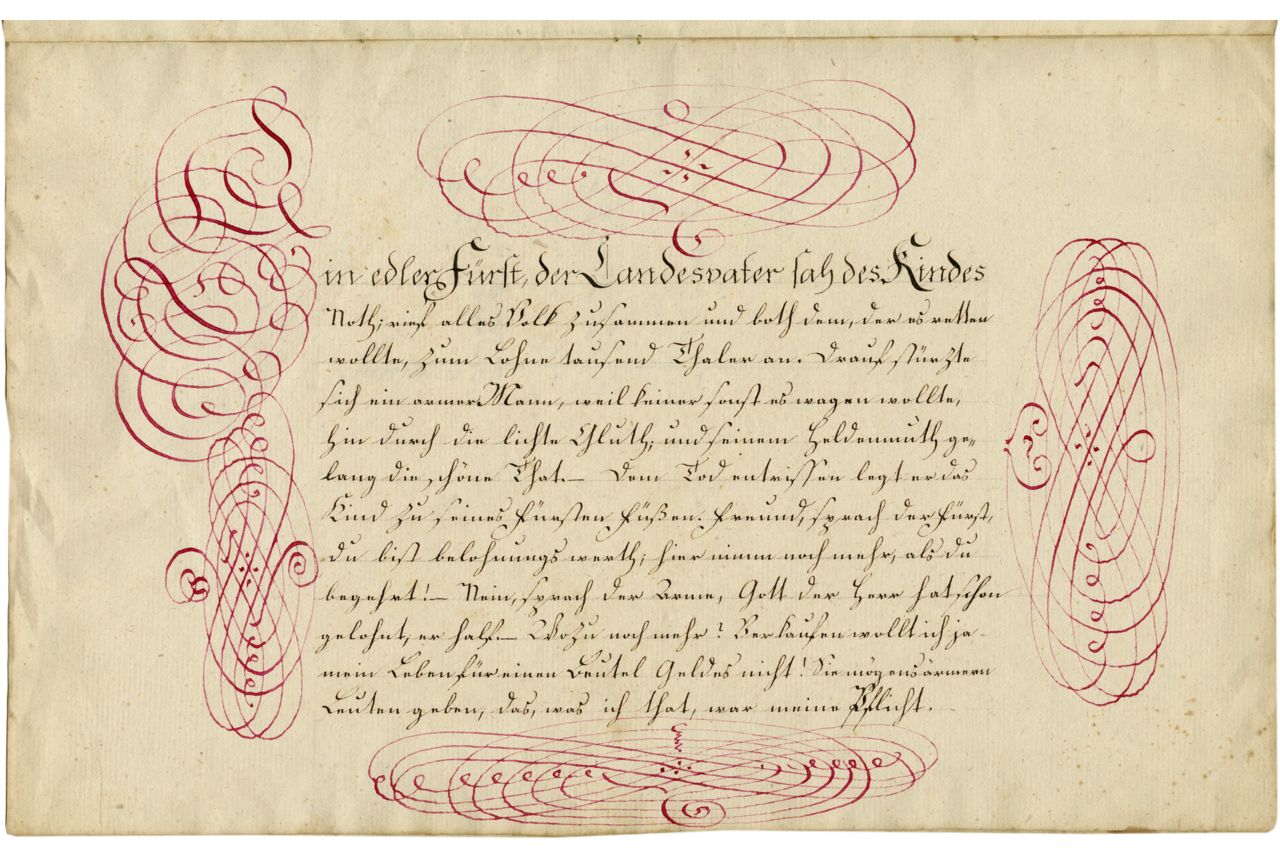 Ein edler Fürst, der Landesvater sah des Kindes
Noth; rief alles Volk zusammen und both dem, der es retten
wollte, zum Lohne tausend Thaler an. Drauf stürzte
sich ein armer Mann, weil keiner sonst es wagen wollte,
hin durch die lichte Gluth; und seinem Heldenmuth ge-
lang die schöne That.— Dem Tod entrissen legt er das
Kind zu seines Fürsten Füßen. Freund, sprach der Fürst,
du bist belohnungswerth; hier nimm noch mehr, als du
begehrt!— Nein, sprach der Arme, Gott der Herr hat schon
gelohnt, er half.— Wozu noch mehr? Verkaufen wollt ich ja
mein Leben für einen Beutel Geldes nicht! Sie mögens ärmern
Leuten geben, das, was ich that, war meine Pflicht.